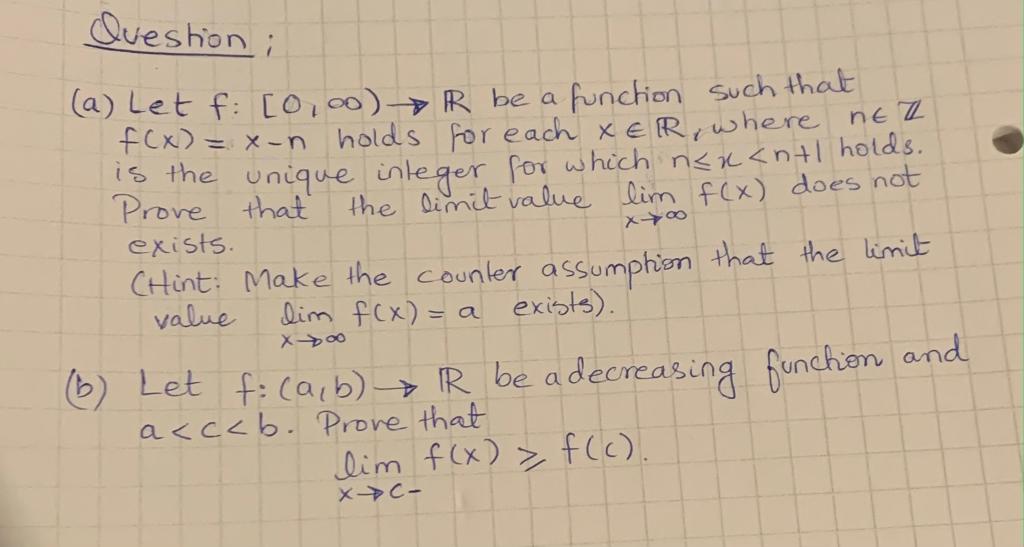 Question ;
(a) Let f: [0,∞) → ℝ be a function such that
f(x) = x-n holds for each x ∈ ℝ, where n ∈ ℤ
is the unique integer for which n≤x<n+1 holds.
Prove that the limit value lim f(x) does not
x→∞
exists.
(Hint: Make the counter assumption that the limit
value lim f(x) = a exists).
x→∞
(b) Let f: (a,b) → ℝ be a decreasing function and
a<c<b. Prove that
lim f(x) ≥ f(c).
x→c-